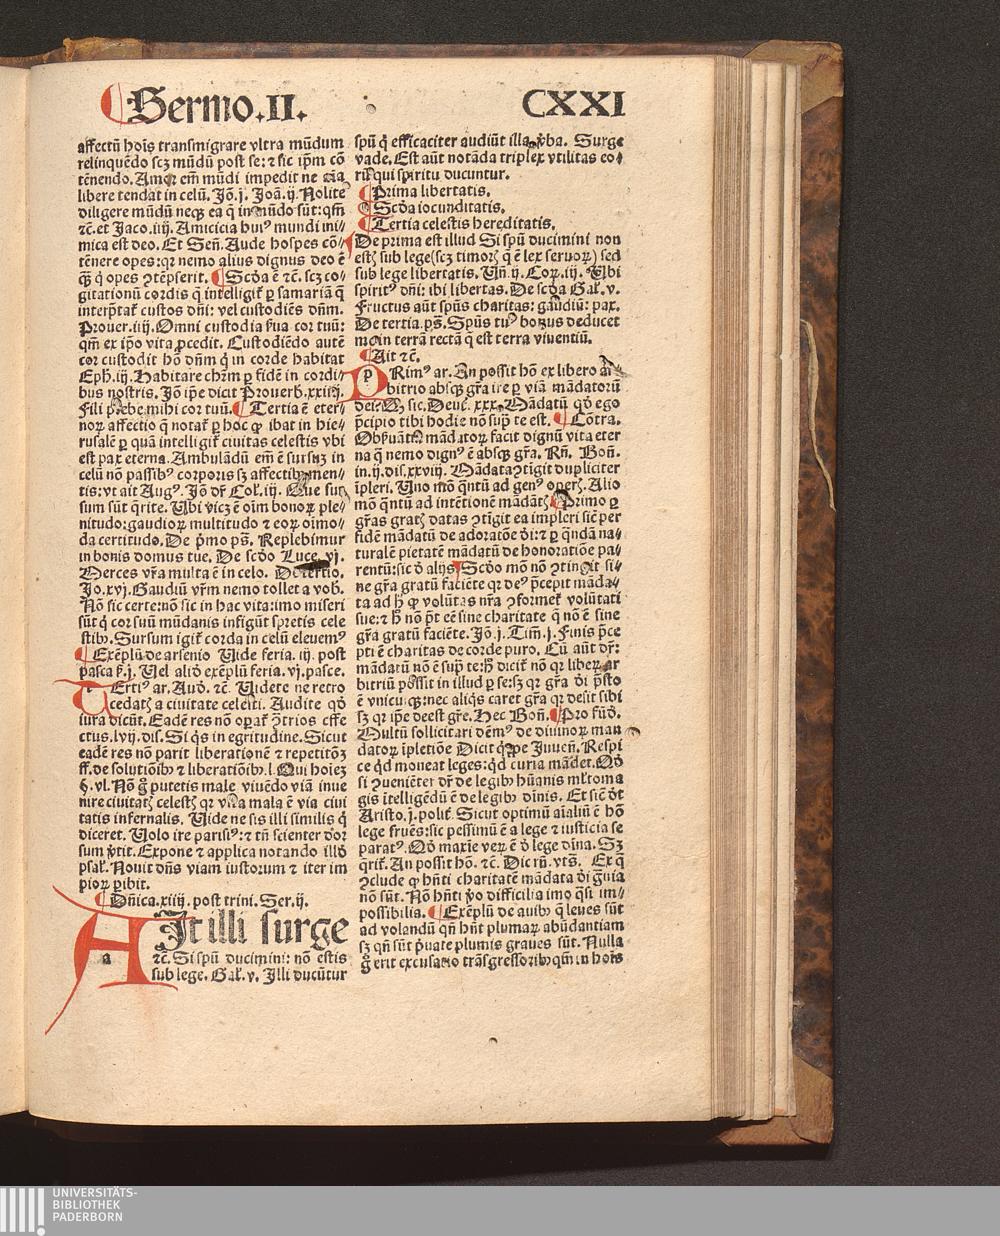 Sermo.II.
CXXI
affectū hoīs transmigrare vltra mūdum
relinquēdo scz mūdū post se: ⁊ sic ip̄m cō
tēnendo. Amor em̄ mūdi impedit ne aīa
libere tendat in celū. Jō.j. Joā.ij. Nolite
diligere mūdū neqꝫ ea q̄ in mūdo sūt: qm̄
⁊c. et Jaco.iiij. Amicicia huiꝰ mundi ini⸗
mica est deo. Et Sen̄. Aude hospes cō⸗
tēnere opes: qr nemo alius dignus deo ē
q̄ꝫ q̇ opes ꝯtēpserit. Scd̓a ē ⁊c. scz co⸗
gitationū cordis q̄ intelligit̃ ꝑ samariā q̄
interp̃tat̃ custos dn̄i: vel custodiēs dn̄m.
Prouer.iiij. Omni custodia ẜua cor tuū:
qm̄ ex ip̄o vita ꝓcedit. Custodiēdo autē
cor custodit hō dn̄m q̇ in corde habitat
Eph.iij. Habitare chr̄m ꝑ fidē in cordi⸗
bus nostris. Jō ip̄e dicit Prouerb.xxiij.
Fili p̃ebe mihi cor tuū. Tertia ē eter⸗
noꝝ affectio q̄ notat̃ ꝑ hoc ꝙ ibat in hie⸗
rusalē ꝑ quā intelligit̃ ciuitas celestis vbi
est pax eterna. Ambulādū em̄ ē sursuꝫ in
celū nō passibꝰ corporis sꝫ affectibꝰ men⸗
tis: vt ait Augꝰ. Jō dr̄ Col̓.iij. Que sur
sum sūt q̄rite. Ubi vicꝫ ē oīm bonoꝝ ple⸗
nitudo: gaudioꝝ multitudo ⁊ eoꝝ oīmo⸗
da certitudo. De p̓mo ps̄. Replebimur
in bonis domus tue. De scd̓o Luce.vj.
Merces vr̄a multa ē in celo. De tertio.
Jo.xvj. Gaudiū vr̄m nemo tollet a vob̓.
Nō sic certe: nō sic in hac vita: imo miseri
sūt q̇ cor suū mūdanis infigūt spretis cele
stibꝫ. Sursum igit̃ corda in celū eleuemꝰ
Exēplū de arsenio Vide feria.iij. post
pasca ẜ.j. Uel alid̓ exēplū feria.vj. pasce.
Tertiꝰ ar. Aud̓. ⁊c. Videte ne retro
cedatꝭ a ciuitate celesti. Audite qd̓
iura dicūt. Eadē res nō oꝑat̃ ꝯtrios effe
ctus. lvij. dis. Si q̇s in egritudine. Sicut
eadē res nō parit liberationē ⁊ repetitōꝫ
ff. de solutiōibꝫ ⁊ liberatiōibꝫ. l. Qui hoīeꝫ
§. vl. Nō g̊ putetis male viuēdo viā inue
nire ciuitatꝭ celestꝭ qr vita mala ē via ciui
tatis infernalis. Vide ne sis illi similis q̇
diceret. Volo ire parisiꝰ: ⁊ tn̄ scienter d̓or
sum p̓tit. Expone ⁊ applica notando illd̓
psal̓. Nouit dn̄s viam iustorum ⁊ iter im
pioꝝ ꝑibit.
Dn̄ica.xiiij. post trini. Ser.ij.
AIt illi surge
a ⁊c. Si spū ducimini: nō estis
sub lege. Gal̓.v. Illi ducūtur
spū q̇ efficaciter audiūt illa v̓ba. Surge
vade. Est aūt notāda triplex vtilitas eo⸗
rū qui spiritu ducuntur.
Prima libertatis.
Scd̓a iocunditatis.
Tertia celestis hereditatis.
De prima est illud Si spū ducimini non
estꝭ sub lege (scꝫ timorꝭ q̄ ē lex seruoꝝ) sed
sub lege libertatis. Un̄.ij. Cor̓.iij. Ubi
spiritꝰ dn̄i: ibi libertas. De scd̓a Gal̓.v.
Fructus aūt spūs charitas: gaudiū: pax.
De tertia ps̄. Spūs tuꝰ bonus deducet
me in terrā rectā q̄ est terra viuentiū.
Ait ⁊c.
p PRimꝰ ar. An possit hō ex libero ar⸗
bitrio absqꝫ gr̄a ire ꝑ viā mādatorū
dei. sic. Deut̓.xxx. Mādatū qd̓ ego
p̄cipio tibi hodie nō suꝑ te est. Cōtra.
Obẜuātia mādatoꝝ facit dignū vita eter
na q̄ nemo dignꝰ ē absqꝫ gr̄a. Rn̄. Bon̄.
in.ij. dis.xxviij. Mādata ꝯtigit dupliciter
īpleri. Uno mō q̄ntū ad genꝰ oꝑꝭ. Alio
mō q̄ntū ad intētionē mādātꝭ. Primo ꝑ
gr̄as gratꝭ datas ꝯtigit ea impleri sic̄ per
fidē mādatū de adoratōe d̓i: ⁊ ꝑ q̄ndā na⸗
turalē pietatē mādatū de honoratiōe pa⸗
rentū: sic d̓ alijs. Scd̓o mō nō ꝯtingit si⸗
ne gr̄a gratū faciēte qr deꝰ p̄cepit māda⸗
ta ad ħ ꝙ volūtas nr̄a ꝯformet̃ volūtati
sue: ⁊ ħ nō p̄t eē sine charitate q̄ nō ē sine
gr̄a gratū faciēte. Jō.j. Tim̄.j. Finis p̄ce
pti ē charitas de corde puro. Cū aūt dr̄:
mādatū nō ē suꝑ te: ħ dicit̃ nō qr liberꝝ ar
bitriū possit in illud ꝑ se: sꝫ qr gr̄a d̓i p̓sto
ē vnicuiqꝫ: nec aliq̇s caret gr̄a qr desit sibi
sꝫ qr ip̄e deest gr̄e. Hec Bon̄. Pro fūd̓.
Multū sollicitari dēmꝰ de diuinoꝝ man
datoꝝ ipletiōe Dicit q̇ppe Juuen̄. Respi
ce qd̓ moueat leges: qd̓ curia mādet. Qd̓
si ꝯueniēter dr̄ de legibꝫ hūanis ml̓toma
gis ītelligēdū ē de legibꝫ diīnis. Et sic̄ d̓t
Aristo.j. polit̓. Sicut optimū aīaliū ē hō
lege fruēs: sic pessimū ē a lege ⁊ iusticia se
paratꝰ. Qd̓ maxīe verꝝ ē d̓ lege diīna. Sꝫ
q̄rit̃. An possit hō. ⁊c. Dic rn̄. vts̄. Ex q̄
ꝯclude ꝙ hn̄ti charitatē mādata d̓i g̊uia
nō sūt. Nō hn̄ti ꝟo difficilia imo q̄si im⸗
possibilia. Exēplū de auibꝫ q̄ leues sūt
ad volandū qn̄ hn̄t plumaꝝ abūdantiam
sꝫ qn̄ sūt p̓uate plumis graues sūt. Nulla
g̊ erit excusatio trāsgressoribꝫ qm̄ in hoīs
UNIVERSITÄTS-
BIBLIOTHEK
PADERBORN